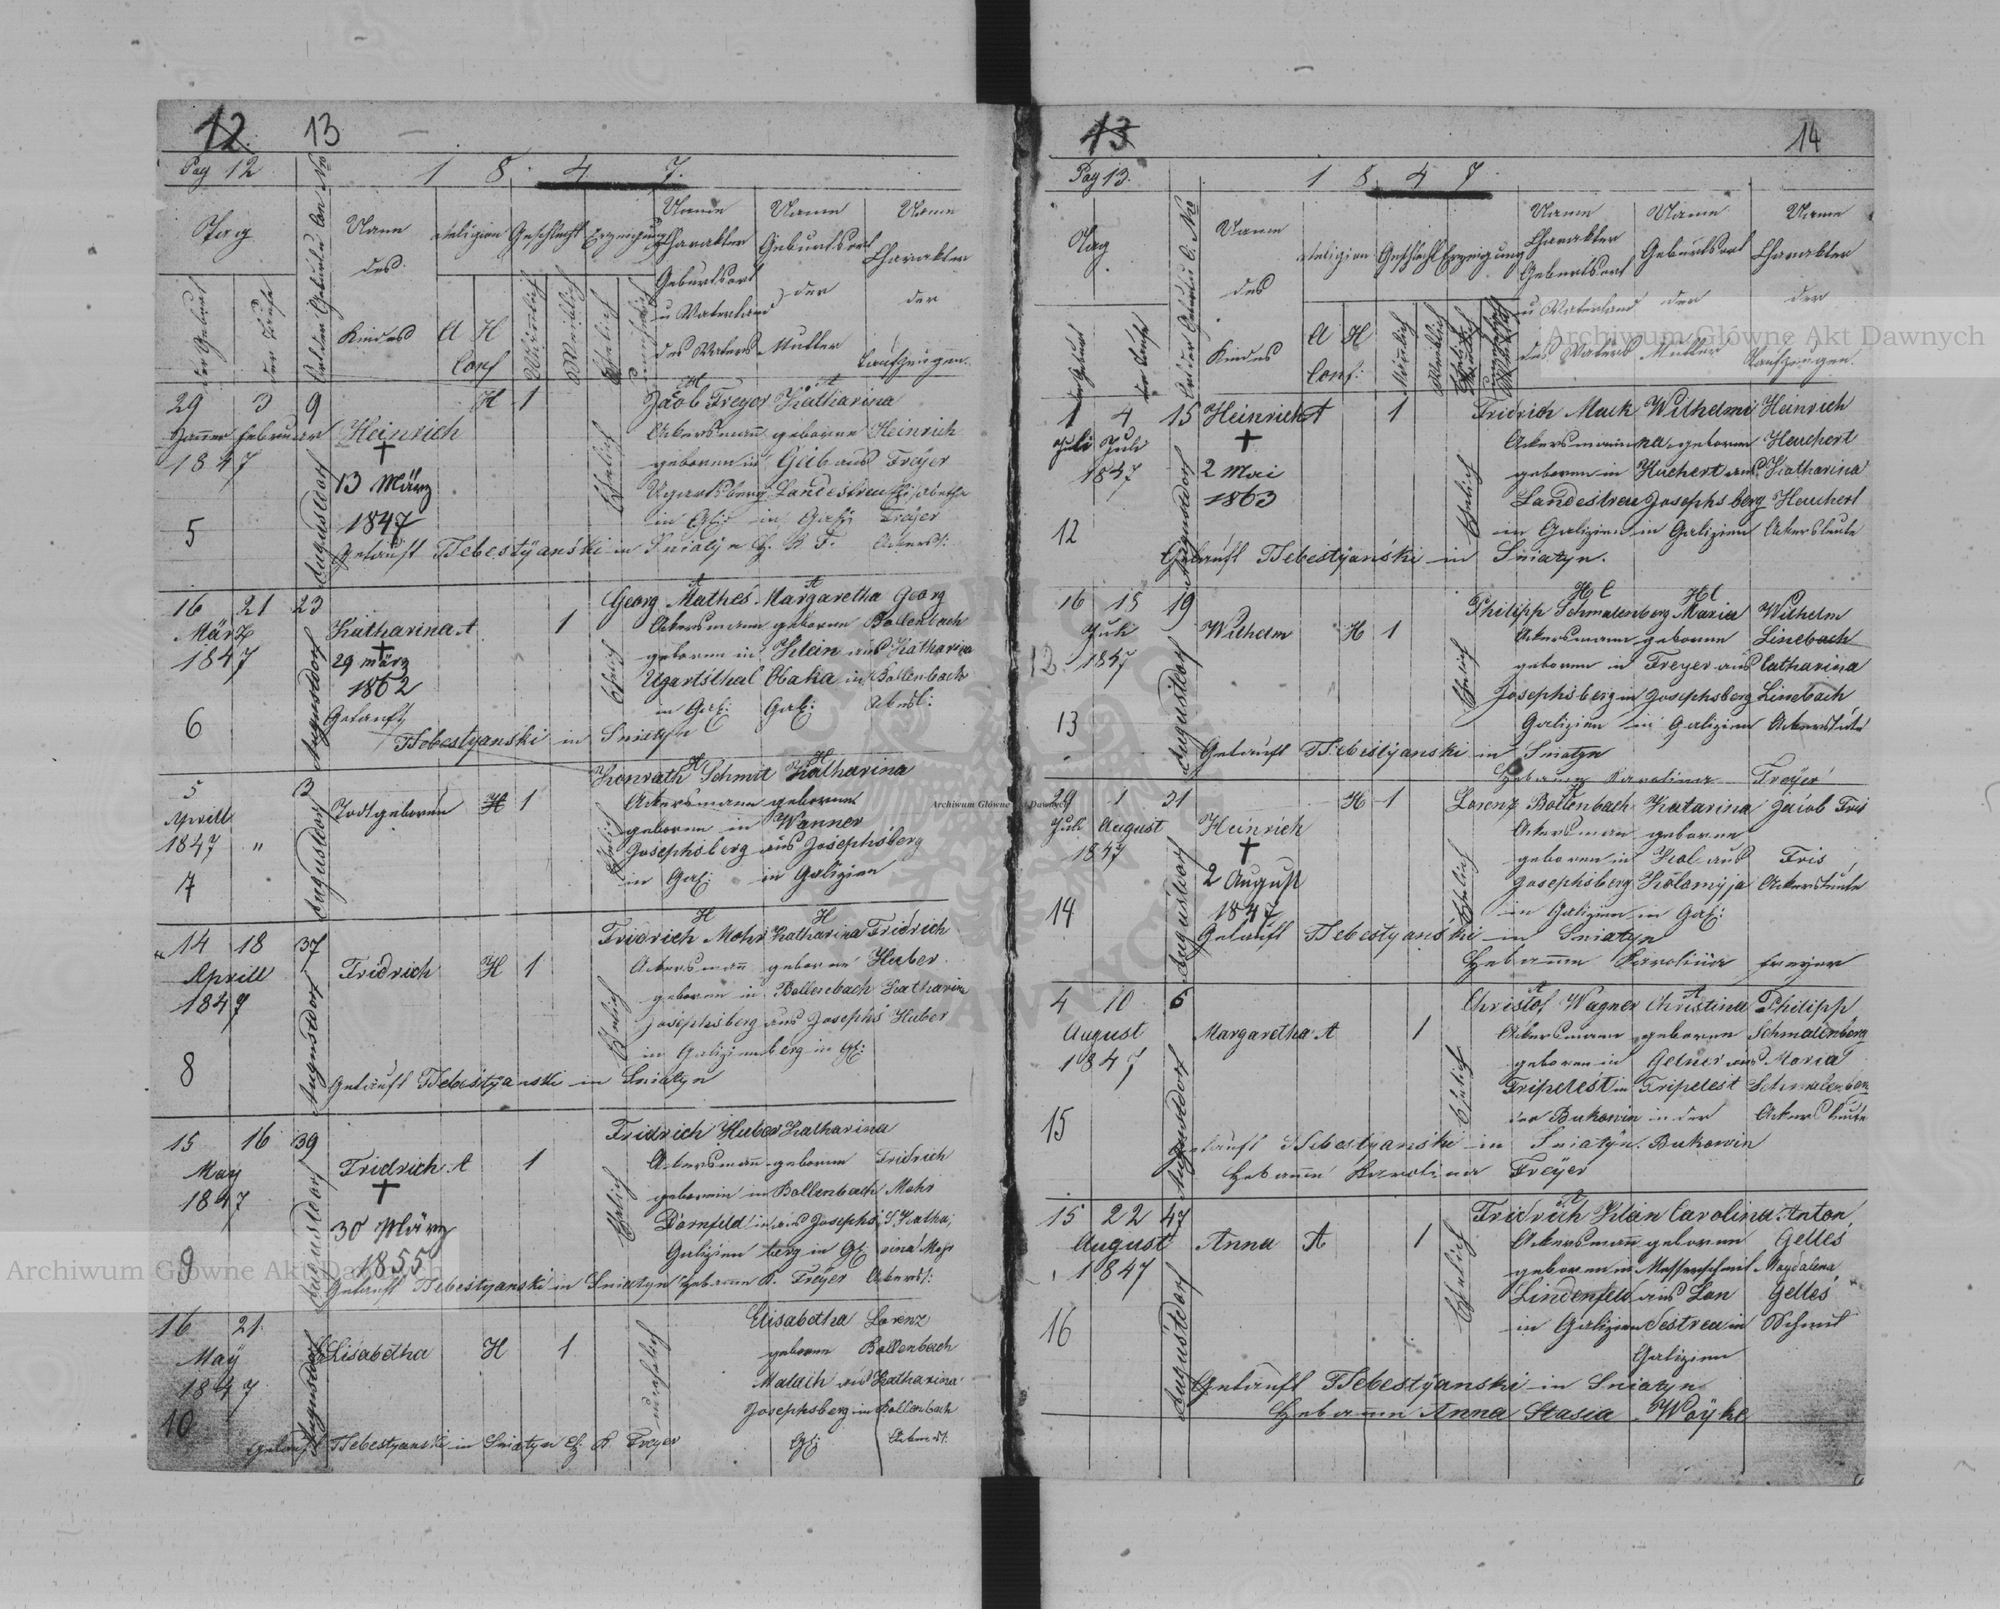 12. 13
Pag 12 1 8. 4 7.
Tag
der Geburt
der Taufe
Haus No
Name
des
Kindes
Religion
A H
Conf
Geschlecht
Männlich
Weiblich
Erzeigung
Ehelich
Unehelich
Name
Charakter
Geburtsort
u Vaterland
des Vaters
Name
Geburtsort
der
Mutter
Name
Charakter
der
Taufzeugen.
29 3 9 H 1 Jacob Freyer Katharina
Jänner Februar Heinrich Ackersmann geborne Heinrich
1847 geboren in Geib aus Freyer
13 März Ugartsberg Landestreu Elisabetha
1847 in Gal: in Gali Freyer
5 Augustdorf Ehelich
Getauft TSebestÿanski in Sniatyn H. K F. Ackersl:
16 21 23 Georg Mathes Margaretha Georg
März Katharina A 1 Ackersmann geborne Bollenbach
1847 29 märz geboren in Klein aus Katharina
1862 Ugartsthal Obaka in Bollenbach
in Gal: Gal: Ackersl:
6 Augustdorf Ehelich
Getauft
TSebestyanski in Sniatyn
5 3 Konrath Schmit Katharina
Aprill Todtgeboren H 1 Ackersmann geborne
1847 " geboren in Wanner
Josephsberg aus Josephsberg
7 in Gal: in Galizien
Augustdorf Ehelich
14 18 37 Fridrich Mohr Katharina Fridrich
Aprill Fridrich H 1 Ackersmann geborne Huber
1847 geboren in Bollenbach Katharina
Josephsberg aus Josephs Huber
in Galizien berg in Gl:
8 Augustdorf Ehelich
Getauft TSebestÿanski in Sniatyn
15 16 39 Fridrich Huber Katharina
May Fridrich A 1 Ackersmann geborne Fridrich
1847 geboren in Bollenbach Mohr
30 März Dornfeld in aus Josephs S. Katha
1855 Galizien berg in Gl: rina Mohr
9 Augustdorf Ehelich
Getauft TSebestyanski in Sniatyn Hebamme K. Freÿer Ackersl:
16 21. Elisabetha Lorenz
Maÿ Elisabetha H 1 geborne Bollenbach
1847 aus Katharina
10 Josephsberg in Bollenbach
Augustdorf unehelich
Getauft TSebestyanski in Sniatyn H: K Freyer Gl: Ackersl:
13 14
Pag 13. 1 8. 4 7
Tag
der Geburt
der Taufe
Name
des
Kindes
Religion
A H
Conf:
Geschlecht
Männlich
Weiblich
Erzeigung
Name
Charakter
Geburtsort
u Vaterland
des Vaters
Name
Geburtsort
der
Mutter
Name
Charakter
der
Taufzeugen.
1 4 15 Heinrich A 1 Fridrich Mack Wilhelmi Heinrich
Juli Juli Ackersmann na geboren Heuchert
1847 2 Mai geboren in Huchert aus Katharina
1863 Landestreu Josephsberg Heuchert
12 in Galizien in Galizien Ackersleute
Augustdorf Ehelich
Getauft TSebestÿanski in Sniatyn.
16 15 19 Philipp Schmalenberg Maria Wilhelm
Juli Wilhelm H 1 Ackersmann geborne Linebach
12 1847 geboren in Freyer aus Catharina
Josephsberg in Josephsberg Linebach
13 Galizien in Galizien Ackersleute
Augustdorf Ehelich
Getauft TSebestÿanski in Sniatyn
Hebamme Karolina Freÿer
29 1 31 H 1 Lorenz Bollenbach Katarina Jacob Fris
Juli August Heinrich Ackersman geborne
1847 geboren in Kol aus Fris
2 August Josephsberg Kolomÿja Ackersleute
14 1847 in Galizien in Gal:
Augustdorf Ehelich
Getauft TSebestyanski in Sniatyn
Hebamme Karolina Freyer
4 10 6 Christof Wagner Christina Philipp
August Margaretha A 1 Ackersmann geboren Schmalenberg
1847 geboren in aus Maria
Fripetest in Fripetest Schmalenber
15 der Bukowin in der Ackersleute
Augustdorf Ehelich
Getauft TSebestyanski in Sniatyn. Bukowin
Hebamme Karolina Freÿer
15 22 47 Fridrich Klan Carolina Anton
August Anna A 1 Ackersmann geboren Gelles
1847 geboren in Messerschmit Magdalena
Lindenfeld aus Lan Gelles
16 in Galizien destreu in Schmit
Augustdorf Ehelich
Galizien
Getauft TSebestÿanski in Sniatyn
Hebamme Anna Stasia Woÿke
Archiwum Główne Akt Dawnych
Archiwum Główne Akt Dawnych
Archiwum Główne Akt Dawnych